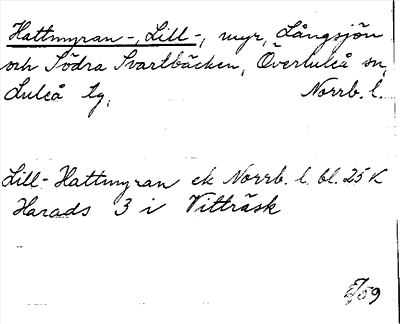 Hattmyran-, Lill-, myr, Långsjön
och Södra Svartbäcken, Överluleå sn,
Luleå tg, Norrb. l.
Lill-Hattmyran ek Norrb. l. bl. 25 K
Harads 3 i Vitträsk
59